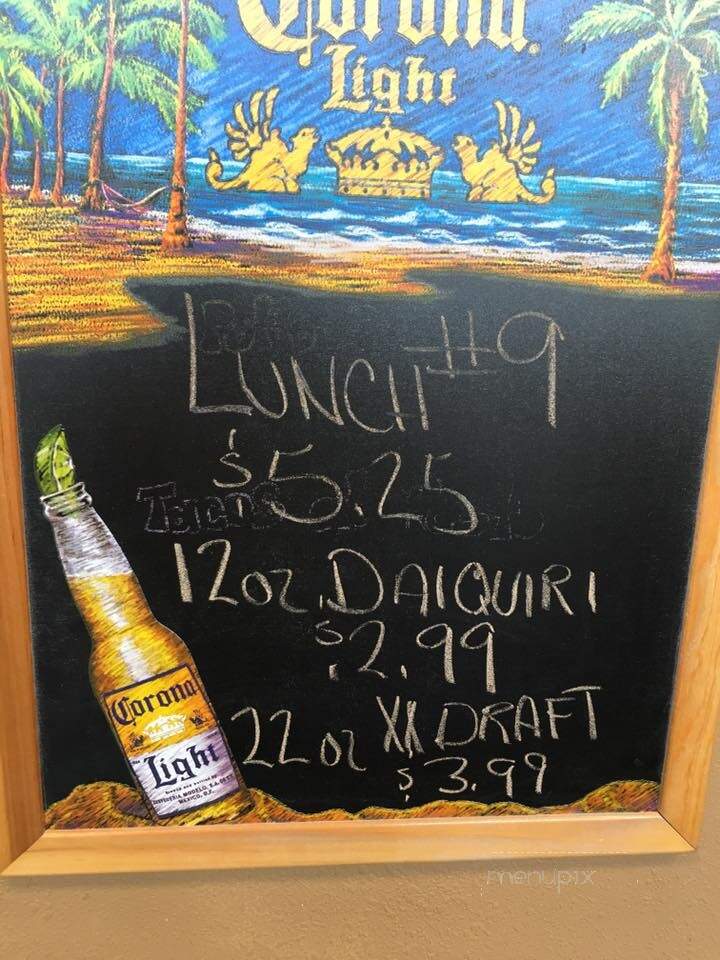 Corona
Light
LUNCH #9
$5.25
12oz. DAIQUIRI
$2.99
22 oz XX DRAFT
$3.99
Corona
Light
CERVECERIA MODELO, S.A. DE C.V.
MEXICO, D.F.
menupix